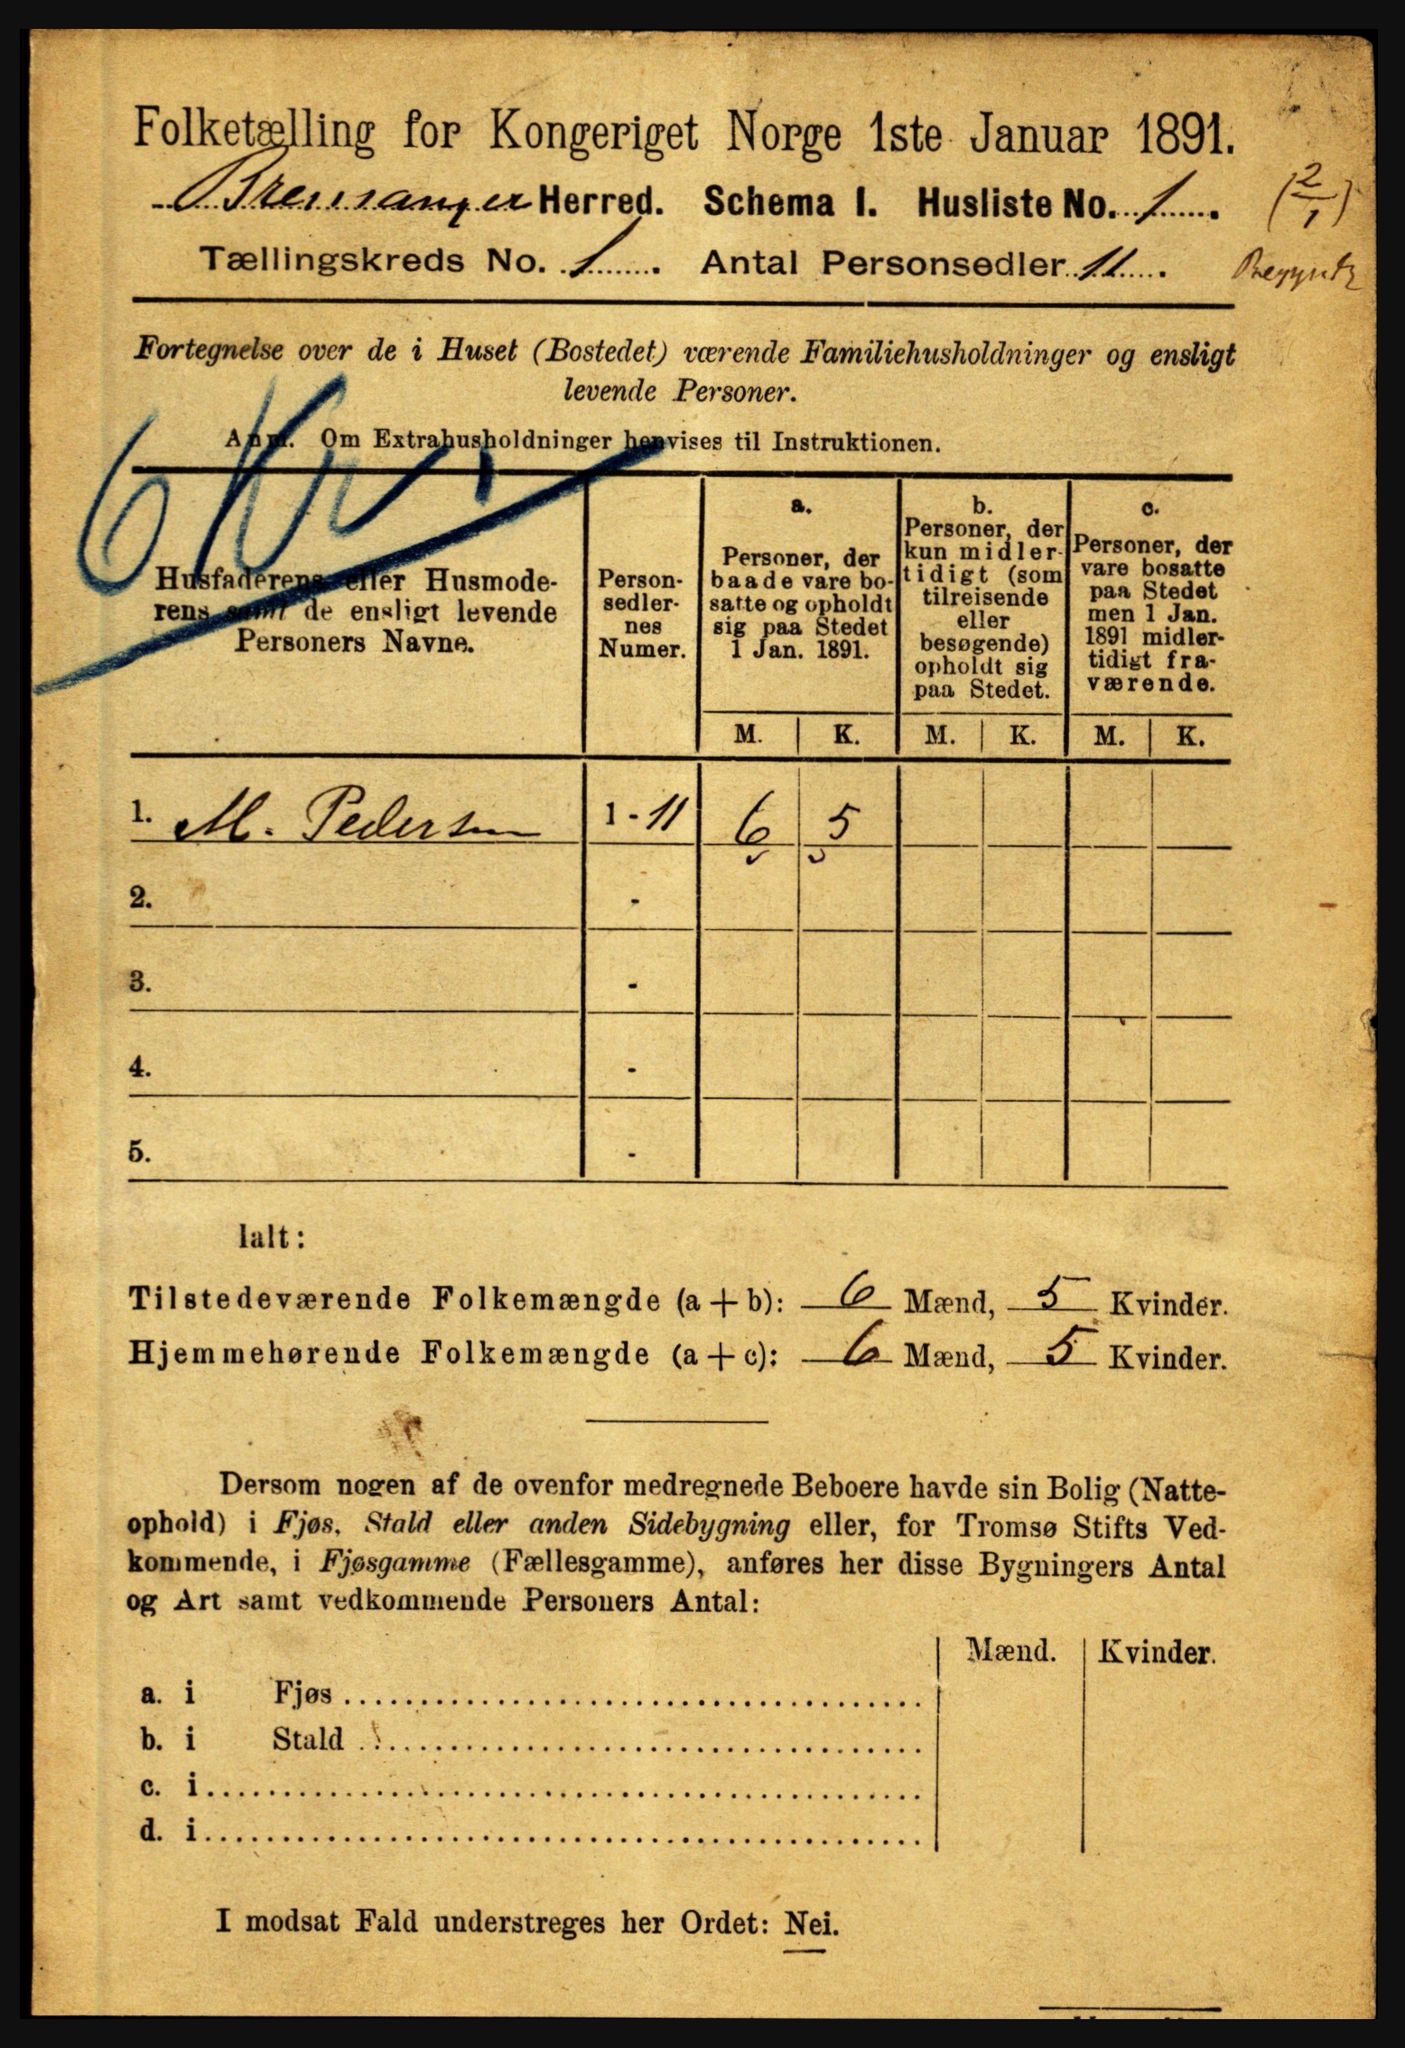 Folketælling for Kongeriget Norge 1ste Januar 1891.
Bremanger Herred. Schema I. Husliste No. 1. (2/1)
Tællingskreds No. 1. Antal Personsedler 11.
Fortegnelse over de i Huset (Bostedet) værende Familiehusholdninger og ensligt
levende Personer.
Anm. Om Extrahusholdninger henvises til Instruktionen.
Husfaderens eller Husmode-
rens samt de ensligt levende
Personers Navne.
Person-
sedler-
nes
Numer.
a.
Personer, der
baade vare bo-
satte og opholdt
sig paa Stedet
1 Jan. 1891.
b.
Personer, der
kun midler-
tidigt (som
tilreisende
eller
besøgende)
opholdt sig
paa Stedet.
c.
Personer, der
vare bosatte
paa Stedet
men 1 Jan.
1891 midler-
tidigt fra-
værende.
M. K. M. K. M. K.
1. M. Pedersen 1 - 11 6 5
2. -
3. -
4. -
5. -
Ialt:
Tilstedeværende Folkemængde (a + b): 6 Mænd, 5 Kvinder.
Hjemmehørende Folkemængde (a + c): 6 Mænd, 5 Kvinder.
Dersom nogen af de ovenfor medregnede Beboere havde sin Bolig (Natte-
ophold) i Fjøs, Stald eller anden Sidebygning eller, for Tromsø Stifts Ved-
kommende, i Fjøsgamme (Fællesgamme), anføres her disse Bygningers Antal
og Art samt vedkommende Personers Antal:
Mænd. Kvinder.
a. i Fjøs
b. i Stald
c. i
d. i
I modsat Fald understreges her Ordet: Nei.